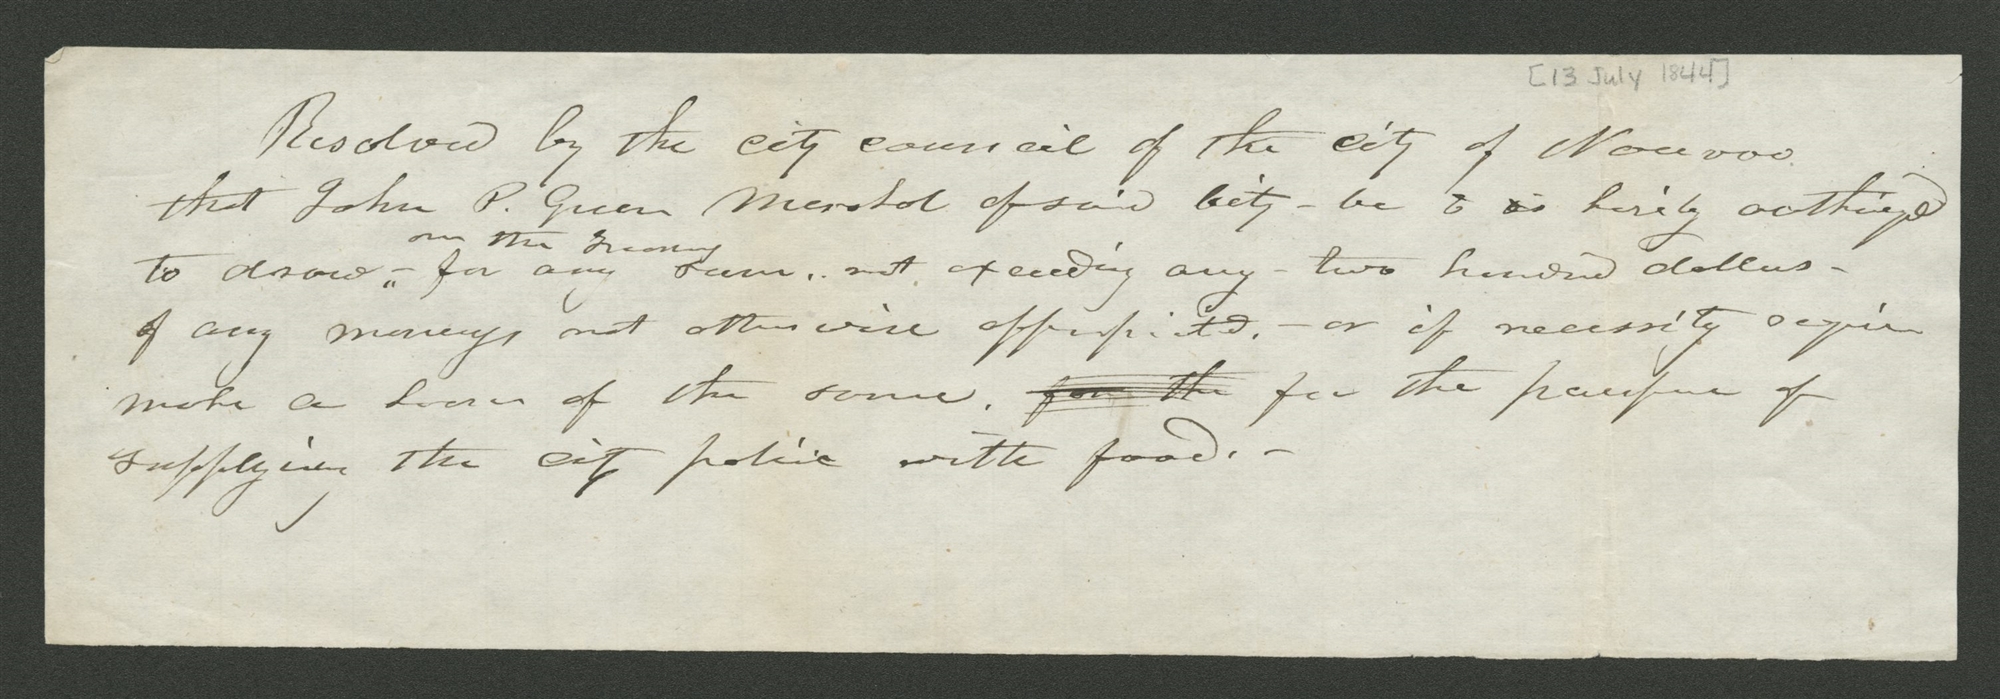 [13 July 1844]
Resolved by the city council of the city of Nauvoo
that John P. Green Marshal of said City - be & is hereby authorized
on the Treasury
to draw - for any sum, not exceeding any - two hundred dollars -
of any moneys not otherwise appropriated. - or if necessity require
make a loan of the same, for the for the purpose of
supplying the city police with food. -